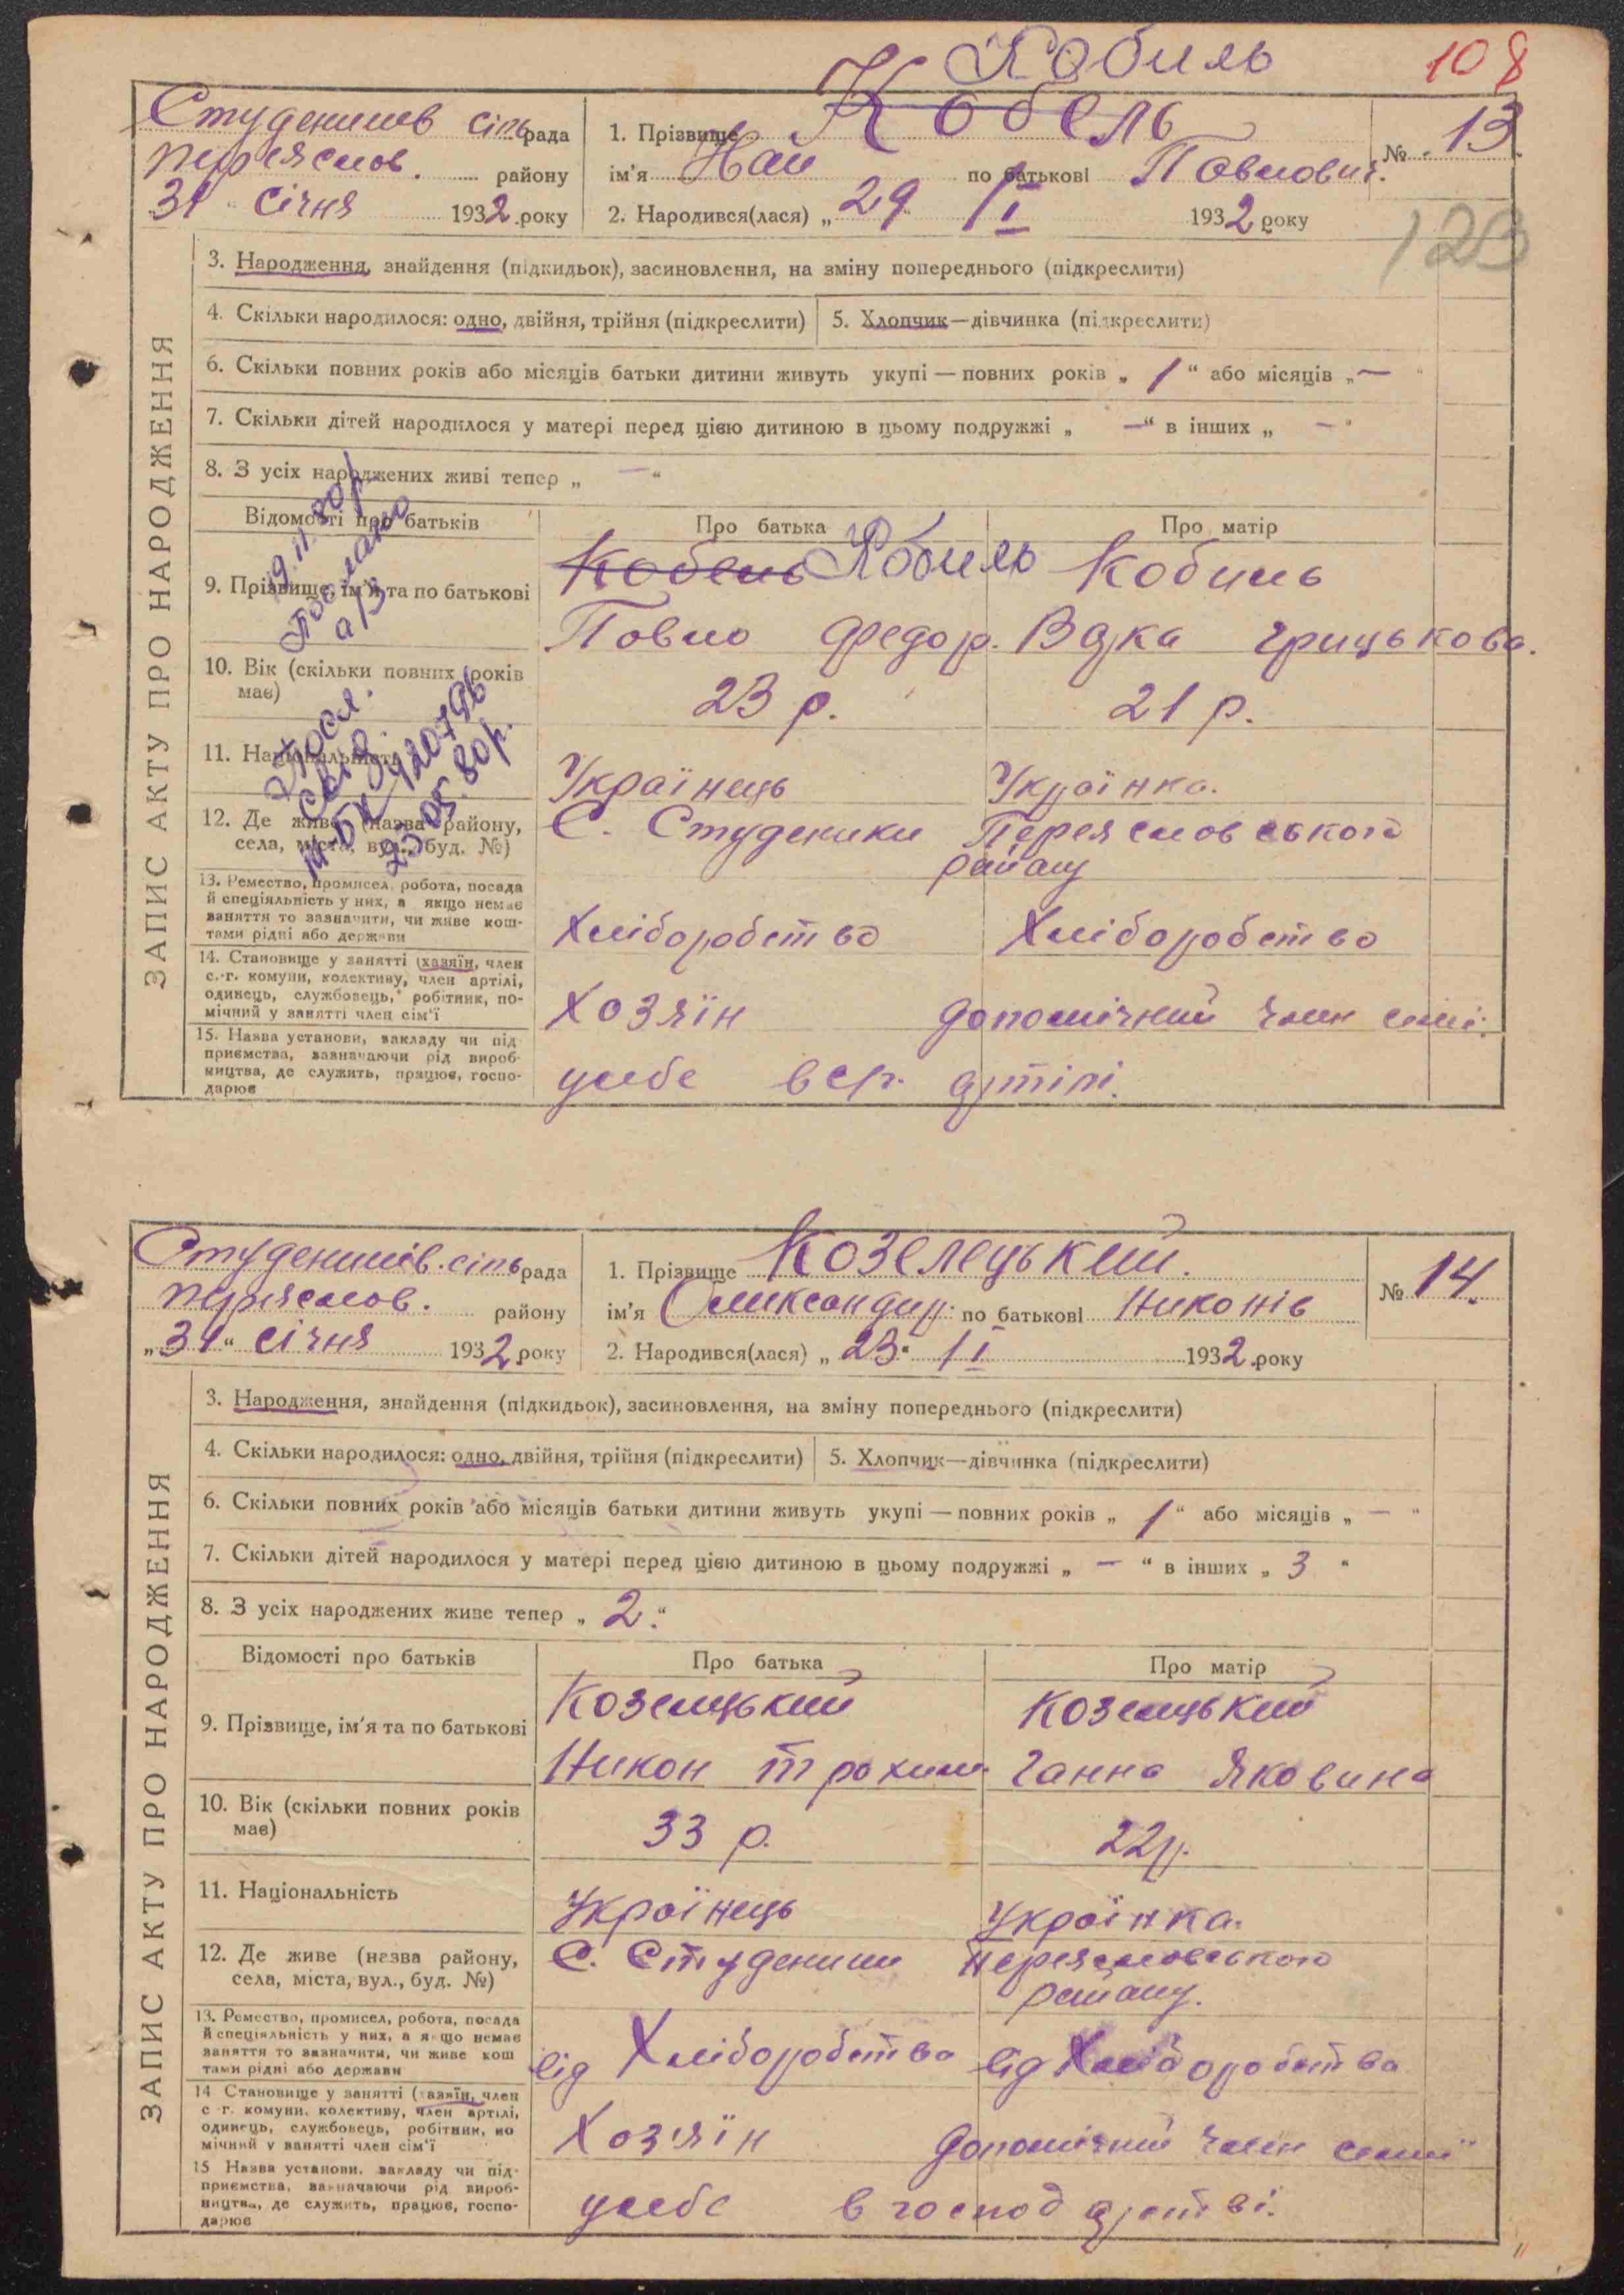 Кобиль
108
Студеників сіль рада
Переяслов. району
31 січня 1932 року
1. Прізвище Кобель
ім'я по батькові Павлович.
2. Народився(лася) „29" / I 1932 року
№ 13.
123
ЗАПИС АКТУ ПРО НАРОДЖЕННЯ
3. Народження, знайдення (підкидьок), засиновлення, на зміну попереднього (підкреслити)
4. Скільки народилося: одно, двійня, трійня (підкреслити)
5. Хлопчик—дівчинка (підкреслити)
6. Скільки повних років або місяців батьки дитини живуть укупі — повних років „ 1 " або місяців „—"
7. Скільки дітей народилося у матері перед цією дитиною в цьому подружжі „ —" в інших „ — "
8. З усіх народжених живі тепер „ — "
Відомості про батьків
Про батька
Про матір
9. Прізвище, ім'я та по батькові
Кобель Кобиль
Павло Федор.
Кобиль
Грицькова.
10. Вік (скільки повних років має)
23 р.
21 р.
11. Національність
Українець
Українка.
12. Де живе (назва району, села, міста, вул., буд. №)
С. Студеники Переясловського
району
13. Ремество, промисел, робота, посада
й спеціяльність у них, а якщо немає
заняття то зазначити, чи живе кош-
тами рідні або держави
Хліборобство
Хліборобство
14. Становище у занятті (хазяїн, член
с.-г. комуни, колективу, член артілі,
одинець, службовець, робітник, по-
мічний у занятті член сім'ї
Хозяїн
допомічний член сімї.
15. Назва установи, закладу чи під-
приємства, зазначаючи рід вироб-
ництва, де служить, працює, госпо-
дарює
у себе в артілі.
23.05.80р.
Студеників. сіль рада
Переяслов. району
„31" січня 1932 року
1. Прізвище Козелецький.
ім'я Олександир. по батькові Никонів
2. Народився(лася) „23" / I 1932 року
№ 14.
ЗАПИС АКТУ ПРО НАРОДЖЕННЯ
3. Народження, знайдення (підкидьок), засиновлення, на зміну попереднього (підкреслити)
4. Скільки народилося: одно, двійня, трійня (підкреслити)
5. Хлопчик—дівчинка (підкреслити)
6. Скільки повних років або місяців батьки дитини живуть укупі — повних років „ 1 " або місяців „ — "
7. Скільки дітей народилося у матері перед цією дитиною в цьому подружжі „ — " в інших „ 3 "
8. З усіх народжених живе тепер „ 2. "
Відомості про батьків
Про батька
Про матір
9. Прізвище, ім'я та по батькові
Козелецький
Никон Трохим.
Козелецький
Ганна Яковина
10. Вік (скільки повних років має)
33 р.
22р.
11. Національність
Українець
Українка.
12. Де живе (назва району, села, міста, вул., буд. №)
С. Студеники Переясловського
району.
13. Ремество, промисел, робота, посада
й спеціяльність у них, а якщо немає
заняття то зазначити, чи живе кош
тами рідні або держави
від Хліборобства
від Хліборобства
14 Становище у занятті (хазяїн, член
с г. комуни, колективу, член артілі,
одинець, службовець, робітник, по
мічний у занятті член сім'ї
Хозяїн
допомічний член семиї
15 Назва установи, закладу чи під-
приємства, зазначаючи рід вироб-
ництва, де служить, працює, госпо-
дарює
у себе в господарстві.